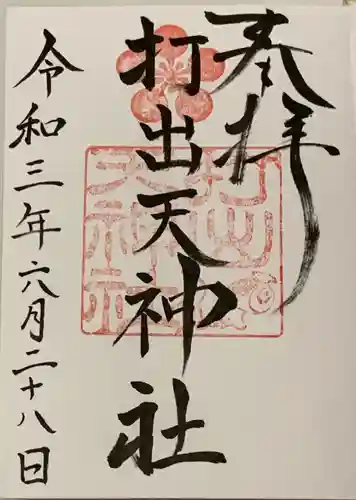 奉拝
打出天神社
令和三年六月二十八日
打出
天神社